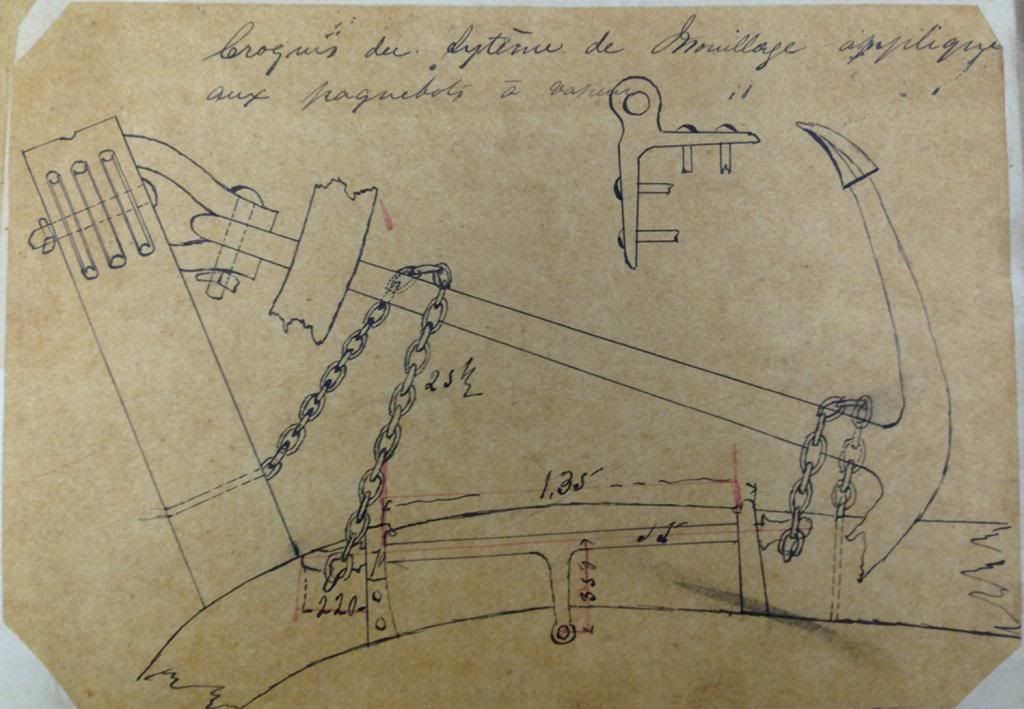 Croquis du Sytème de Mouillage applique
aux paquebots à vapeur
1,35
220
359